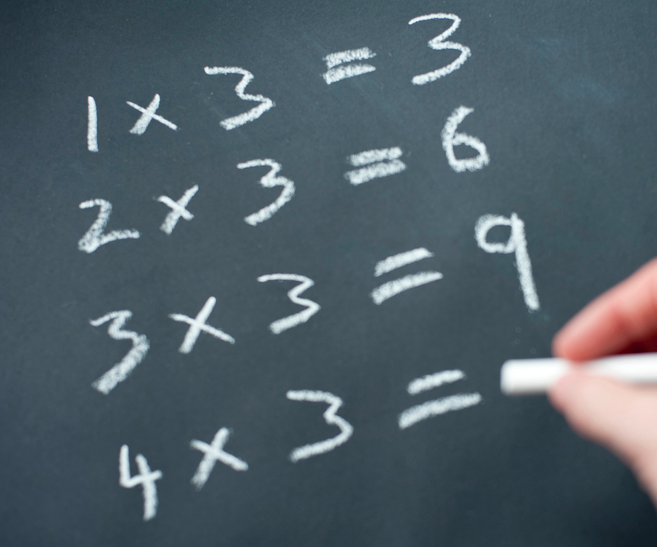 1 × 3 = 3
2 × 3 = 6
3 × 3 = 9
4 × 3 =